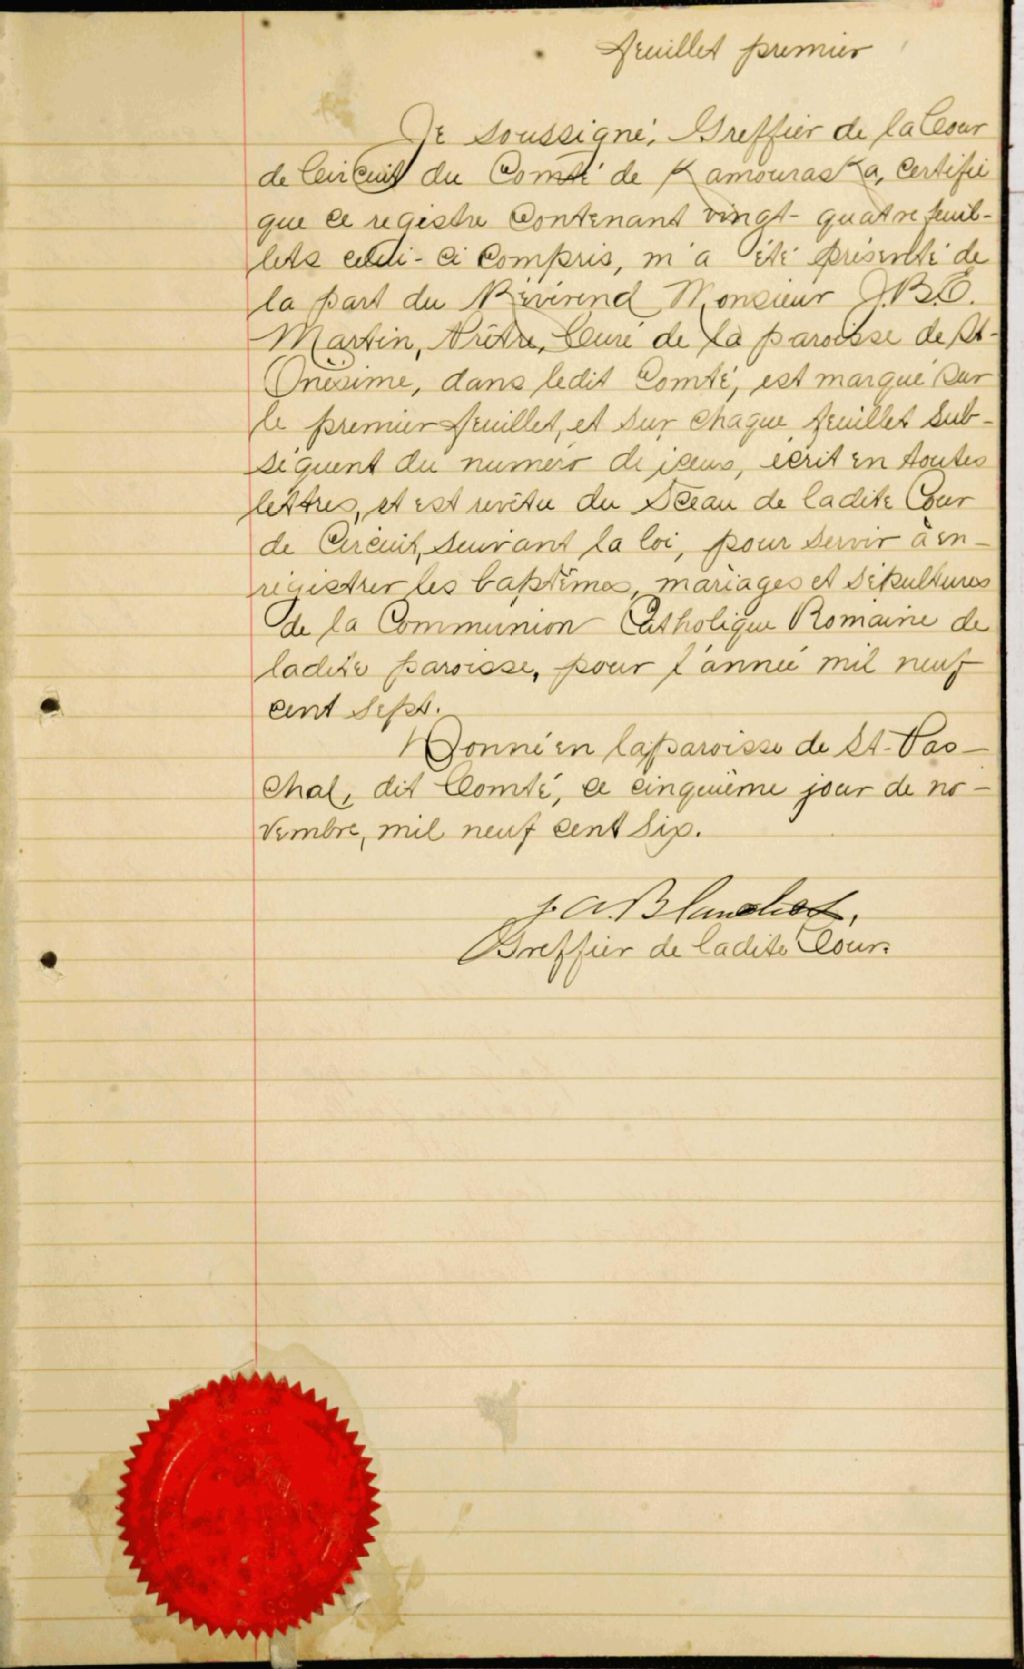 feuillet premier
Je soussigné, Greffier de la Cour
de Circuit du Comté de Kamouraska, certifie
que ce registre contenant vingt-quatre feuil-
lets celui-ci compris, m'a été présenté de
la part du Révérend Monsieur J.B.E.
Martin, Prêtre, Curé de la paroisse de St-
Onésime, dans ledit Comté, est marqué sur
le premier feuillet, et sur chaque feuillet sub-
séquent du numéro de iceux, écrit en toutes
lettres, et est revêtu du Sceau de ladite Cour
de Circuit, suivant la loi, pour servir à en-
régistrer les baptêmes, mariages et sépultures
de la Communion Catholique Romaine de
ladite paroisse, pour l'année mil neuf
cent sept.
Donné en la paroisse de St-Pas-
chal, dit Comté, ce cinquième jour de no-
vembre, mil neuf cent six.
J. A. Blanchet,
Greffier de ladite Cour.